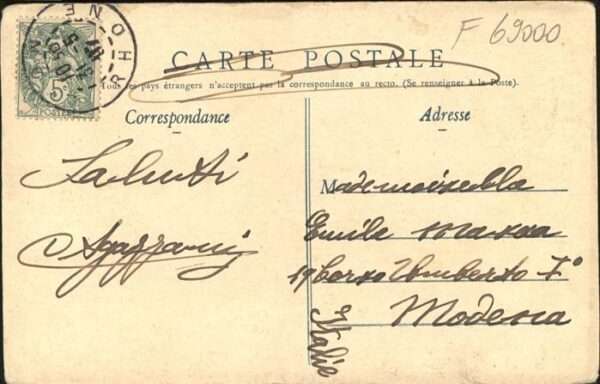 F 69000
RHONE
5c
CARTE POSTALE
Tous les pays étrangers n'acceptent pas la correspondance au recto. (Se renseigner à la Poste).
Correspondance
Adresse
Saluti
Mademoiselle
Emile
19 Corso Umberto I°
Modena
Italie